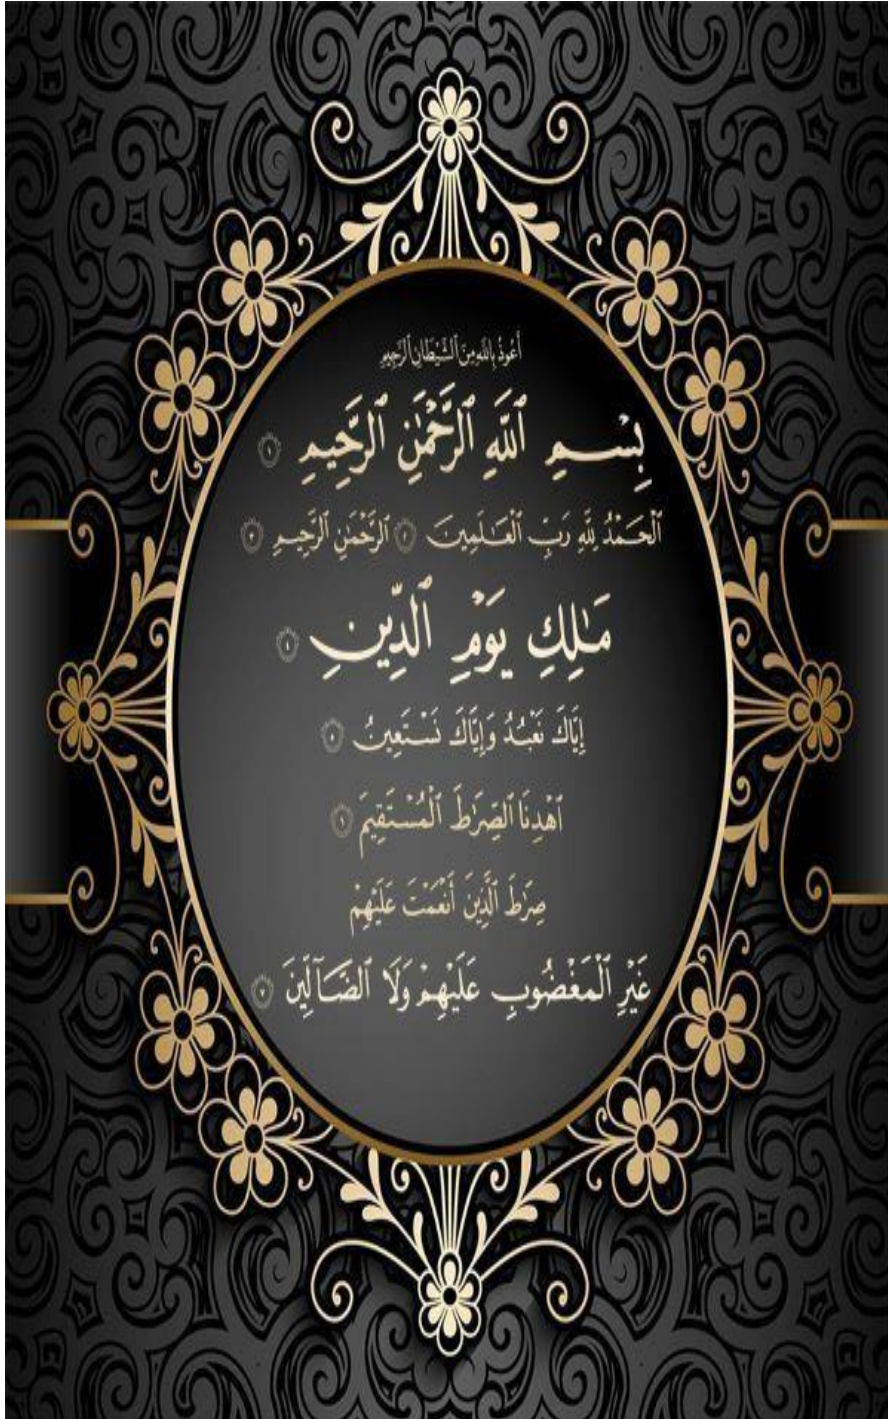 أَعُوذُ بِاللَّهِ مِنَ ٱلشَّيْطَانِ ٱلرَّجِيمِ
بِسْمِ ٱللَّهِ ٱلرَّحْمَٰنِ ٱلرَّحِيمِ ١
ٱلْحَمْدُ لِلَّهِ رَبِّ ٱلْعَـٰلَمِينَ ٢ ٱلرَّحْمَٰنِ ٱلرَّحِيمِ ٣
مَـٰلِكِ يَوْمِ ٱلدِّينِ ٤
إِيَّاكَ نَعْبُدُ وَإِيَّاكَ نَسْتَعِينُ ٥
ٱهْدِنَا ٱلصِّرَٰطَ ٱلْمُسْتَقِيمَ ٦
صِرَٰطَ ٱلَّذِينَ أَنْعَمْتَ عَلَيْهِمْ
غَيْرِ ٱلْمَغْضُوبِ عَلَيْهِمْ وَلَا ٱلضَّآلِّينَ ٧